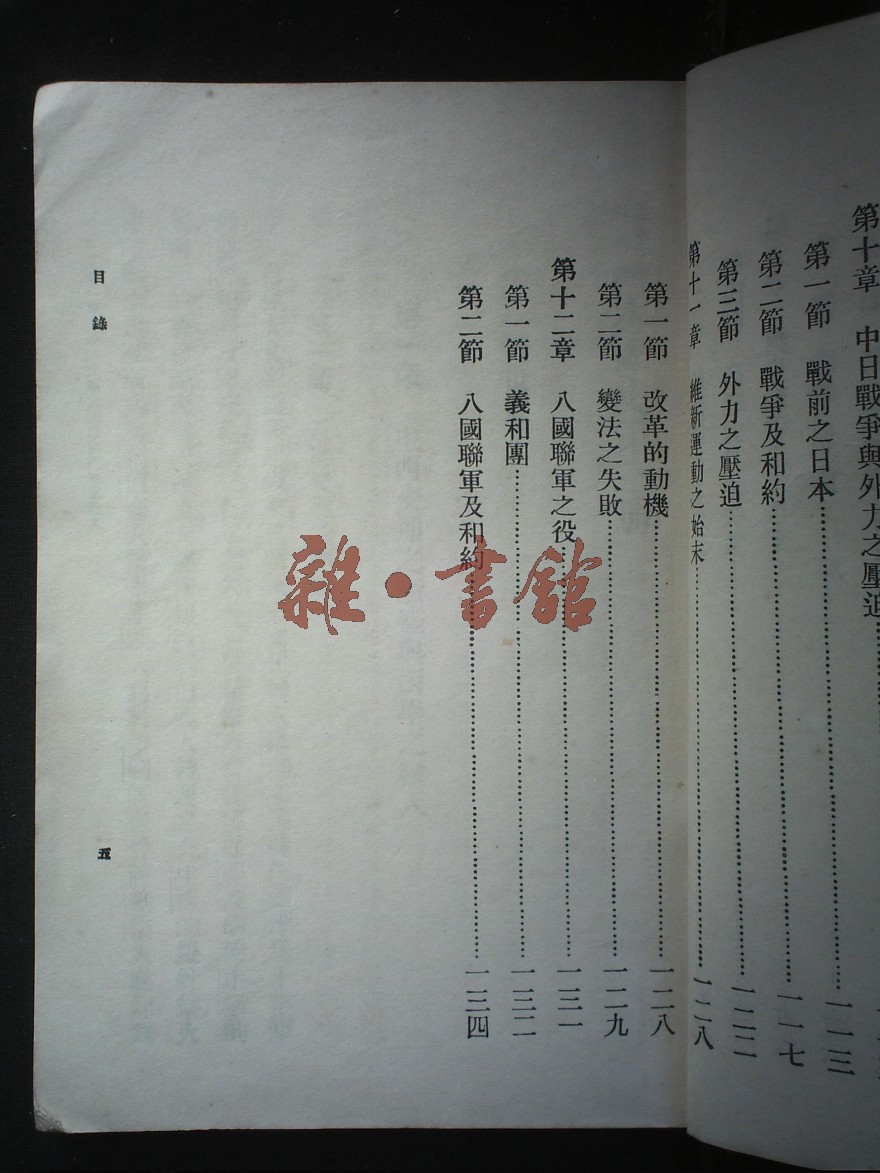 第十章 中日戰爭與外力之壓迫
第一節 戰前之日本…………一一三
第二節 戰爭及和約…………一一七
第三節 外力之壓迫…………一二二
第十一章 維新運動之始末…………一二八
第一節 改革的動機…………一二八
第二節 變法之失敗…………一二九
第十二章 八國聯軍之役…………一三一
第一節 義和團…………一三二
第二節 八國聯軍及和約…………一三四
目錄
五
雜·書館